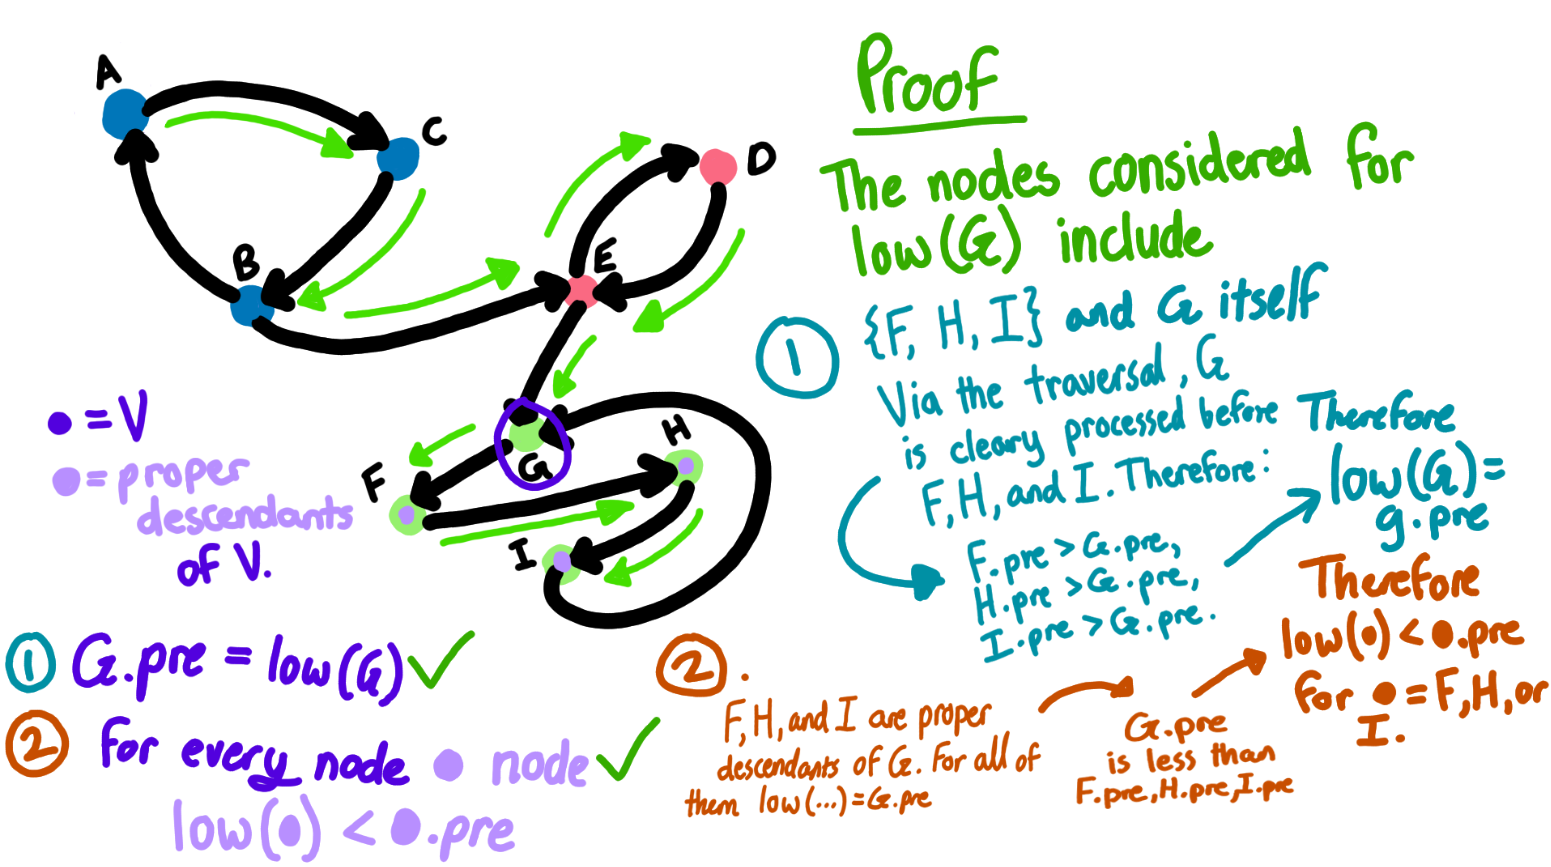 A
C
D
B
E
F
G
H
I
= V
= proper
descendants
of V.
① G.pre = low(G)
② for every node node
low( ) < .pre
Proof
The nodes considered for
low(G) include
① {F, H, I} and G itself
Via the traversal, G
is cleary processed before
F, H, and I. Therefore:
F.pre > G.pre,
H.pre > G.pre,
I.pre > G.pre.
Therefore
low(G) =
g.pre
② .
F, H, and I are proper
descendants of G. For all of
them low(...) = G.pre
G.pre
is less than
F.pre, H.pre, I.pre
Therefore
low( ) < .pre
for = F, H, or
I.